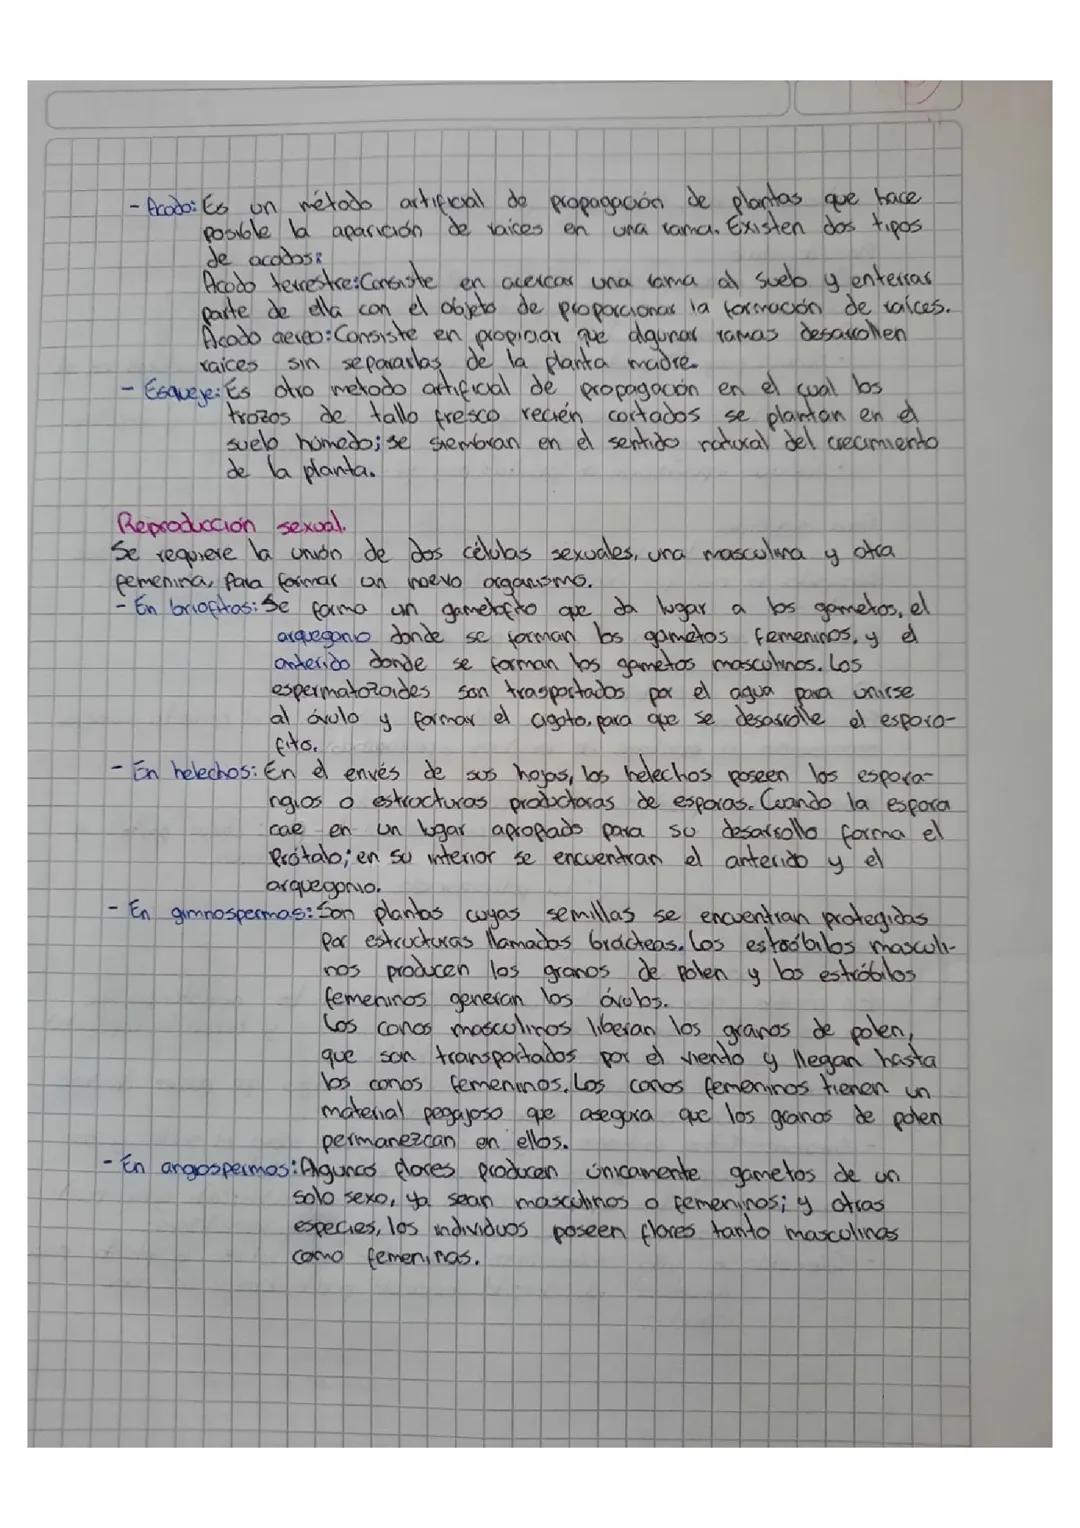 - Acodo: Es un método artificial de propagación de plantas que hace
posible la aparición de raices en una rama. Existen dos tipos
de acodos:
Acodo terrestre: Consiste en acercar una rama al suelo y enterrar
parte de ella con el objeto de proporcionar la formación de raíces.
Acodo aereo: Consiste en propiciar que algunar ramas desarrollen
raices sin separarlas de la planta madre.
- Esqueje: Es otro metodo artificial de propagación en el cual los
trozos de tallo fresco recién cortados se plantan en el
suelo húmedo; se siembran en el sentido natural del crecimiento
de la planta.
Reproducción sexual.
Se requiere la unión de dos células sexuales, una masculina y otra
femenina, para formar un nuevo organismo.
- En briofitas: Se forma un gametofito que da lugar a los gametos, el
arquegonio donde se forman los gametos femeninos, y el
anterido donde se forman los gametos masculinos. Los
espermatozoides son trasportados por el agua para unirse
al óvulo y formar el cigoto, para que se desarrolle el esporo-
fito.
- En helechos: En el envés de sus hojas, los helechos poseen los espora-
ngios o estructuras productoras de esporas. Cuando la espora
cae en un lugar apropiado para su desarrollo forma el
Prótalo; en su interior se encuentran el anterido y el
arquegonio.
- En gimnospermas: Son plantas cuyas semillas se encuentran protegidas
por estructuras llamadas brácteas. Los estróbilos masculi-
nos producen los granos de polen y los estróbilos
femeninos generan los óvulos.
Los conos masculinos liberan los granos de polen,
que son transportados por el viento y llegan hasta
los conos femeninos. Los conos femeninos tienen un
material pegajoso que asegura que los granos de polen
permanezcan en ellos.
- En angiospermas: Algunas flores producen únicamente gametos de un
solo sexo, ya sean masculinos o femeninos; y otras
especies, los individuos poseen flores tanto masculinas
como femeninas.